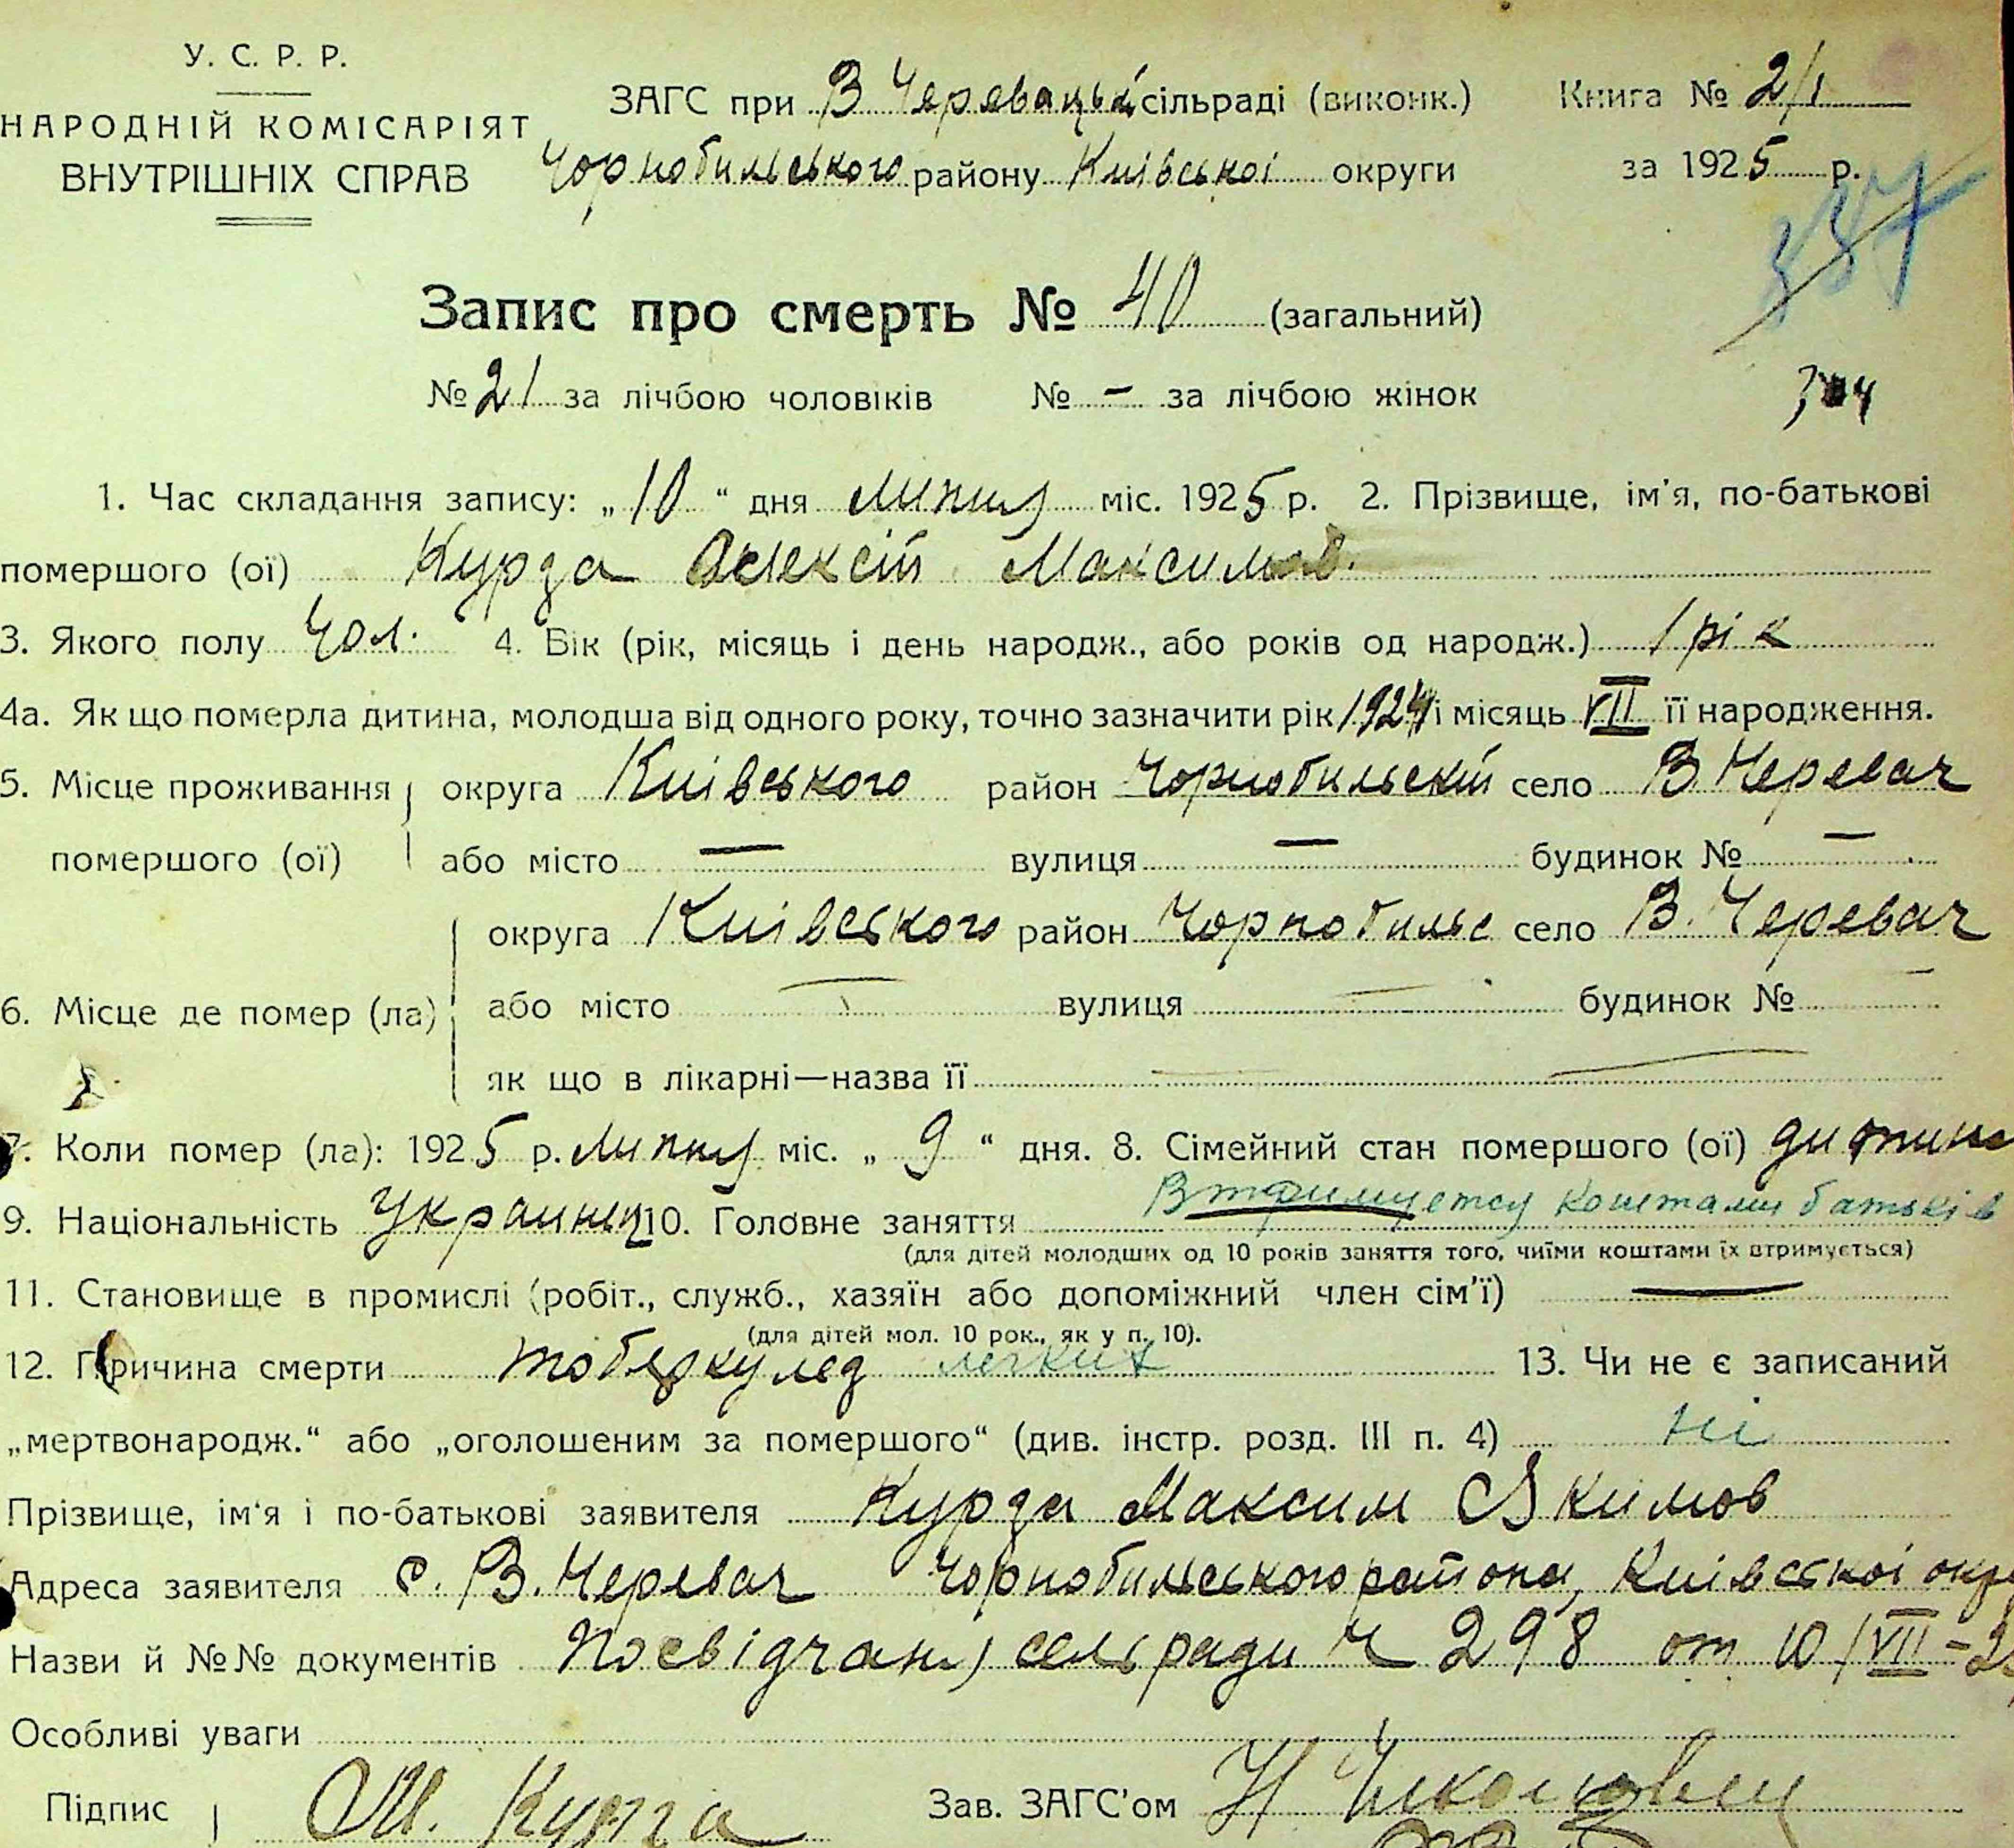 У. С. Р. Р.
НАРОДНІЙ КОМІСАРІЯТ
ВНУТРІШНІХ СПРАВ
ЗАГС при В Черевацькій сільраді (виконк.) Книга № 2/1
Чорнобильського району Київської округи за 1925 р.
337
Запис про смерть № 40 (загальний)
№ 21 за лічбою чоловіків № — за лічбою жінок
1. Час складання запису: „10“ дня липня міс. 1925 р. 2. Прізвище, ім'я, по-батькові
помершого (ої) Курда Алексій Максимов.
3. Якого полу Чол. 4. Вік (рік, місяць і день народж., або років од народж.) 1 рік
4а. Як що померла дитина, молодша від одного року, точно зазначити рік 1924 і місяць VII її народження.
5. Місце проживання помершого (ої) округа Київського район Чорнобильскій село В. Черевач
або місто — вулиця — будинок № —
6. Місце де помер (ла) округа Київського район Чорнобильс село В. Черевач
або місто — вулиця — будинок № —
як що в лікарні—назва її —
7. Коли помер (ла): 1925 р. липня міс. „9“ дня. 8. Сімейний стан помершого (ої) дитина
9. Національність Украинец 10. Головне заняття Втримуетсу коштами батьків
(для дітей молодших од 10 років заняття того, чиїми коштами їх втримується)
11. Становище в промислі (робіт., служб., хазяїн або допоміжний член сім'ї) —
(для дітей мол. 10 рок., як у п. 10).
12. Причина смерти тоберкулед легких 13. Чи не є записаний
„мертвонародж.“ або „оголошеним за помершого“ (див. інстр. розд. III п. 4) Ні
Прізвище, ім'я і по-батькові заявителя Курда Максим Якимов
Адреса заявителя с. В. Черевач Чорнобильського району, Київської окр
Назви й №№ документів Посвідчання сельради ч 298 от 10/VII-2
Особливі уваги
Підпис М. Курда Зав. ЗАГС'ом